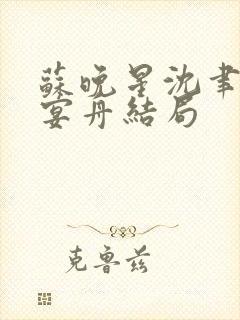 蘇晚星沈聿
宴丹結局
克魯茲